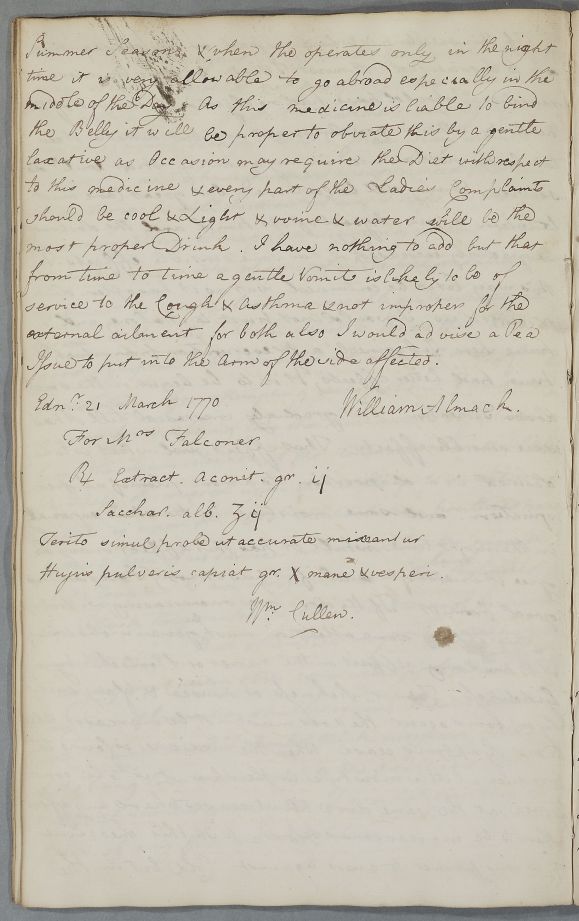 Summer Season & when the operates only in the night
time it is very allowable to go abroad especially in the
middle of the Day. As this medicine is liable to bind
the Belly it will be proper to obviate this by a gentle
laxative as Occasion may require the Diet with respect
to this medicine & every part of the Ladies Complaints
should be cool & Light & wine & water will be the
most proper Drink. I have nothing to add but that
from time to time a gentle Vomit is likely to be of
service to the Cough & Asthma & not improper for the
external ailment for both also I would advise a Pea
Issue to put into the Arm of the side affected.
Ednr. 21 March 1770 William Almack.
For Mrs Falconer
℞ Extract. aconit. gr. ij
Sacchar. alb. ʒ ij
Terito simul probe ut accurate misceantur
Hujus pulveris capiat gr. X mane & vesperi.
Wm. Cullen.